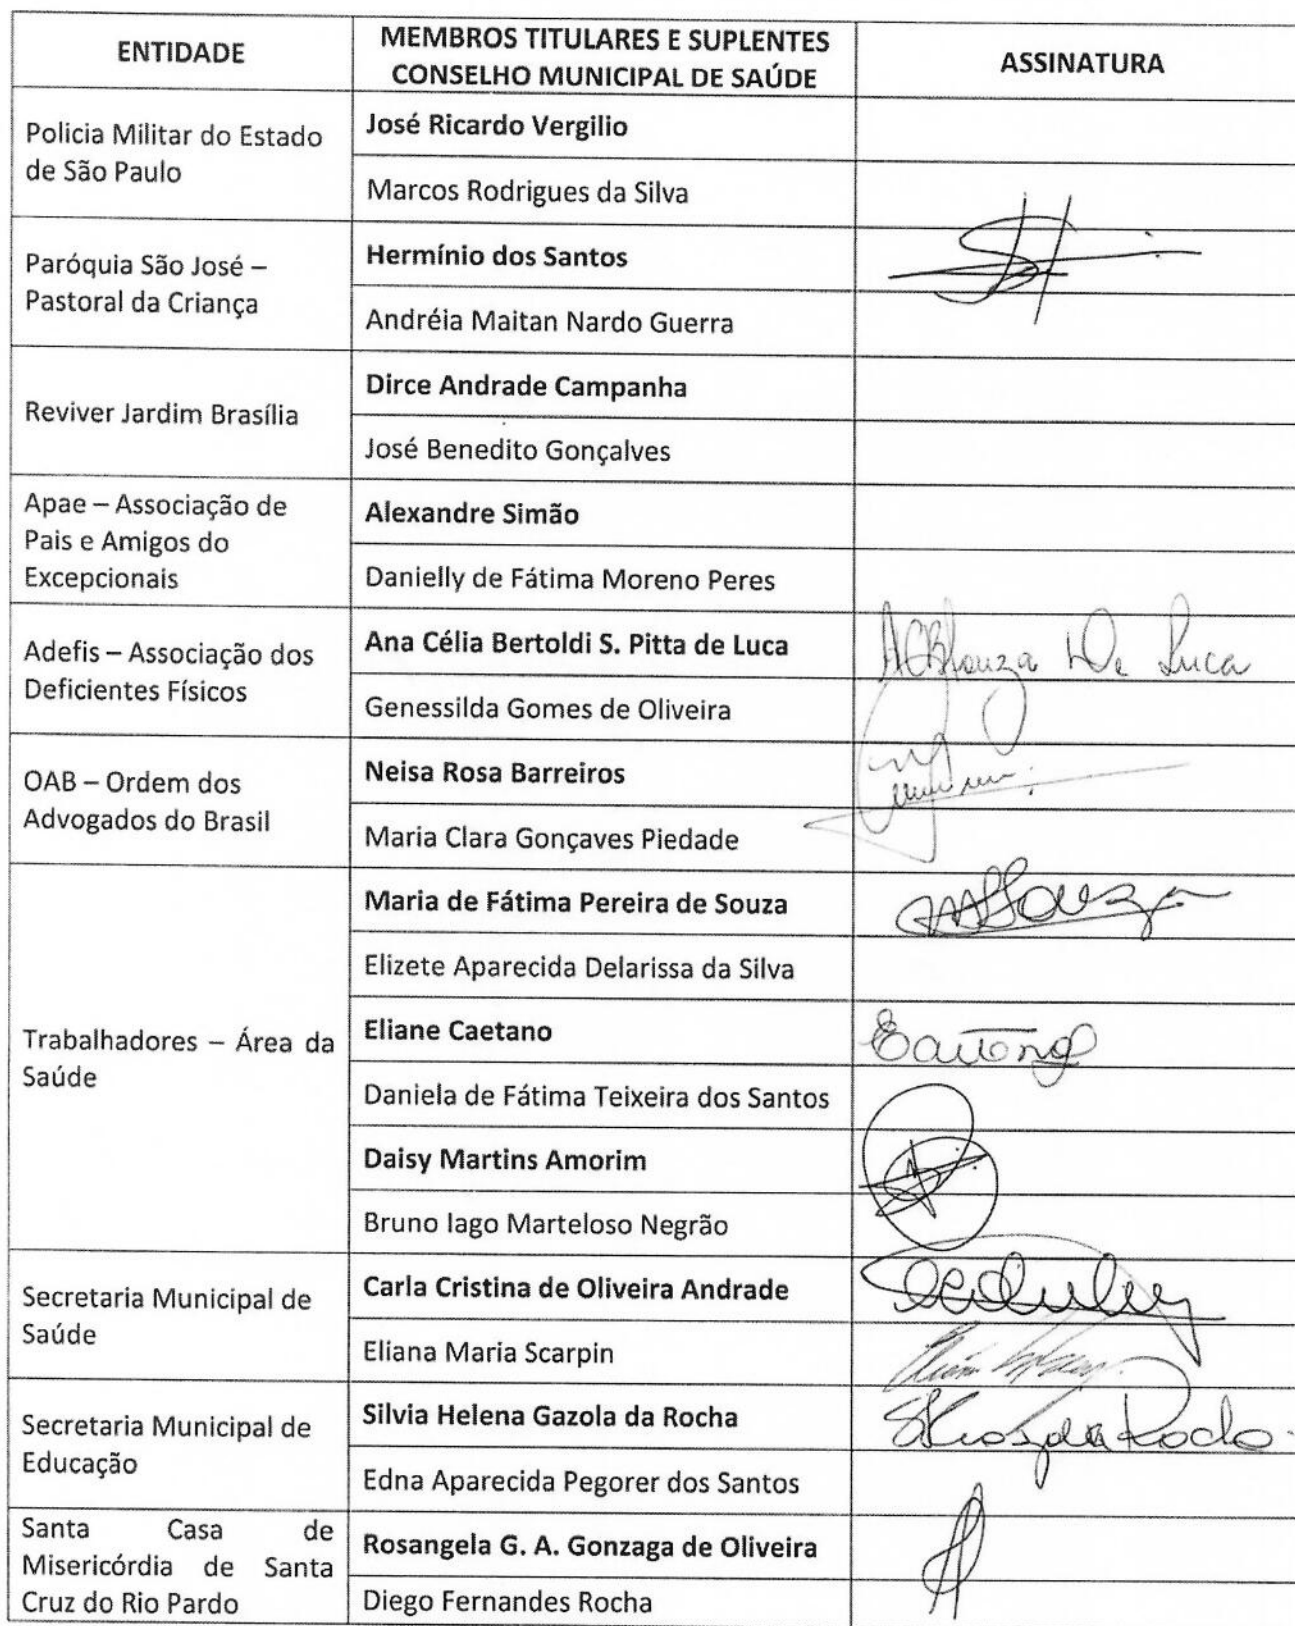 ENTIDADE
MEMBROS TITULARES E SUPLENTES
CONSELHO MUNICIPAL DE SAÚDE
ASSINATURA
Policia Militar do Estado
de São Paulo
José Ricardo Vergilio
Marcos Rodrigues da Silva
Paróquia São José –
Pastoral da Criança
Hermínio dos Santos
Andréia Maitan Nardo Guerra
Reviver Jardim Brasília
Dirce Andrade Campanha
José Benedito Gonçalves
Apae – Associação de
Pais e Amigos do
Excepcionais
Alexandre Simão
Danielly de Fátima Moreno Peres
Adefis – Associação dos
Deficientes Físicos
Ana Célia Bertoldi S. Pitta de Luca
De Luca
Genessilda Gomes de Oliveira
OAB – Ordem dos
Advogados do Brasil
Neisa Rosa Barreiros
Maria Clara Gonçaves Piedade
Trabalhadores – Área da
Saúde
Maria de Fátima Pereira de Souza
Elizete Aparecida Delarissa da Silva
Eliane Caetano
Daniela de Fátima Teixeira dos Santos
Daisy Martins Amorim
Bruno Iago Marteloso Negrão
Secretaria Municipal de
Saúde
Carla Cristina de Oliveira Andrade
Eliana Maria Scarpin
Secretaria Municipal de
Educação
Silvia Helena Gazola da Rocha
Edna Aparecida Pegorer dos Santos
Santa Casa de
Misericórdia de Santa
Cruz do Rio Pardo
Rosangela G. A. Gonzaga de Oliveira
Diego Fernandes Rocha